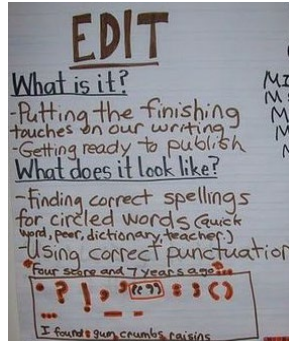 EDIT
What is it?
-Putting the finishing
touches on our writing
-Getting ready to publish
What does it look like?
-Finding correct spellings
for circled words (quick
word, peer, dictionary, teacher.)
-Using correct punctuation
"Four score and 7 years ago..."
. ? ! , ' (" ") : ; ( )
... — -
I found: gum, crumbs, raisins